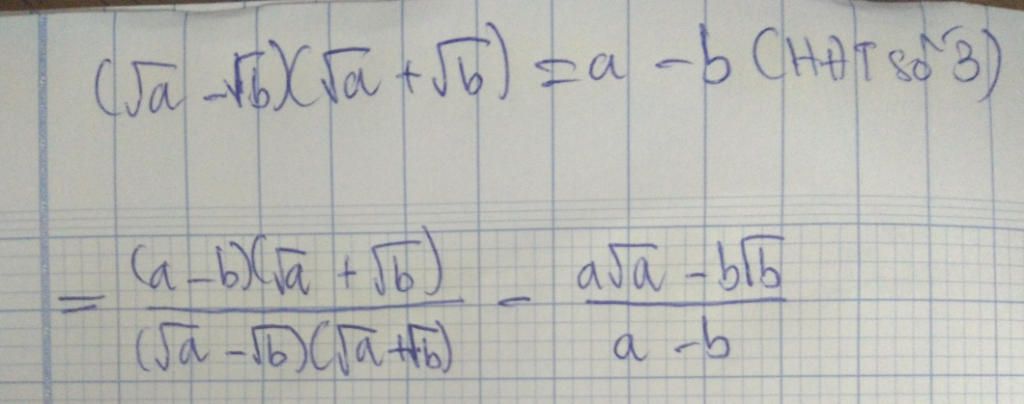 (√a - √b)(√a + √b) = a - b (HĐT số 3)
= \frac{(a - b)(√a + √b)}{(√a - √b)(√a + √b)} - \frac{a√a - b√b}{a - b}